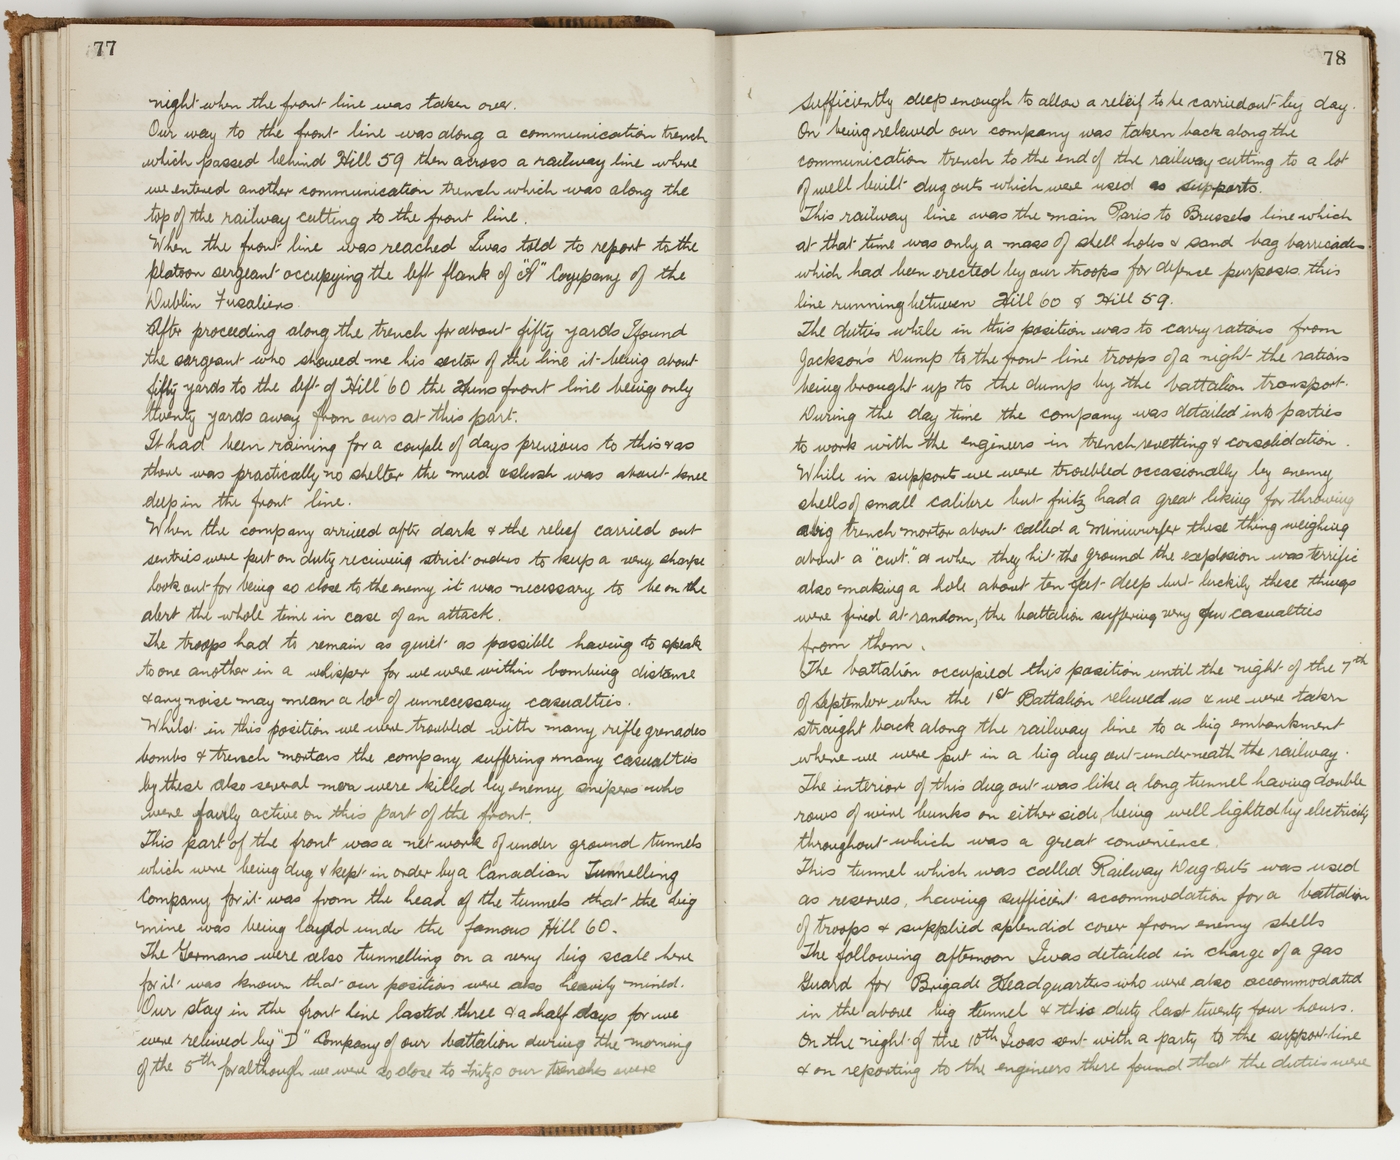 77
night when the front line was taken over.
Our way to the front line was along a communication trench
which passed behind Hill 59 then across a railway line where
we entered another communication trench which was along the
top of the railway cutting to the front line.
When the front line was reached I was told to report to the
platoon sergeant occupying the left flank of "A" Company of the
Dublin Fusaliers
After proceeding along the trench for about fifty yards I found
the sergeant who showed me his sector of the line it being about
fifty yards to the left of Hill 60 the Huns front line being only
twenty yards away from ours at this part.
It had been raining for a couple of days previous to this & as
there was practically no shelter the mud & slush was about knee
deep in the front line.
When the company arrived after dark & the relief carried out
sentries were put on duty receiving strict orders to keep a very sharpe
look out for being so close to the enemy it was necessary to be on the
alert the whole time in case of an attack.
The troops had to remain as quiet as possible having to speak
to one another in a whisper for we were within bombing distance
& any noise may mean a lot of unnecessary casualties.
Whilst in this position we were troubled with many rifle grenades
bombs & trench mortars the company suffering many casualties
by these also several more were killed by enemy snipers who
were fairly active on this part of the front.
This part of the front was a net work of under ground tunnels
which were being dug & kept in order by a Canadian Tunnelling
Company for it was from the head of the tunnels that the big
mine was being layed under the famous Hill 60.
The Germans were also tunnelling on a very big scale here
for it was known that our positions were also heavily mined.
Our stay in the front line lasted three & a half days for we
were relieved by "D" Company of our battalion during the morning
of the 5th for although we were so close to fritz's our trenches were
78
sufficiently deep enough to allow a releif to be carried out by day.
On being releived our company was taken back along the
communication trench to the end of the railway cutting to a lot
of well built dug outs which were used as supports.
This railway line was the main Paris to Brussels line which
at that time was only a mass of shell holes & sand bag barricades
which had been erected by our troops for defense purposes, this
line running between Hill 60 & Hill 59.
The duties while in this position was to carry rations from
Jackson's Dump to the front line troops of a night the rations
being brought up to the dump by the battalion transport.
During the day time the company was detailed into parties
to work with the engineers in trench revetting & consolidation.
While in supports we were troubled occasionally by enemy
shells of small calibre but fritz had a great liking for throwing
a big trench mortor about called a Miniwurfer these thing weighing
about a "cwt." & when they hit the ground the explosion was terrific
also making a hole about ten feet deep but luckily these things
were fired at random, the battalion suffering very few casualties
from them.
The battalion occupied this position until the night of the 7th
of September when the 1st Battalion releived us & we were taken
straight back along the railway line to a big embankment
where we were put in a big dug out underneath the railway.
The interior of this dug out was like a long tunnel having double
rows of wire bunks on either side, being well lighted by electricity
throughout which was a great convenience.
This tunnel which was called Railway Dug-outs was used
as reserves, having sufficient accommodation for a battalion
of troops & supplied splendid cover from enemy shells
The following afternoon I was detailed in charge of a gas
Guard for Brigade Headquarters who were also accommodated
in the above big tunnel & this duty last twenty four hours.
On the night of the 10th I was sent with a party to the support line
& on reporting to the engineers there found that the duties were